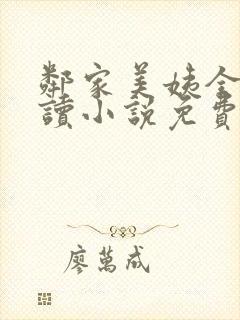 鄰家美姨全
讀小說免費
廖萬成